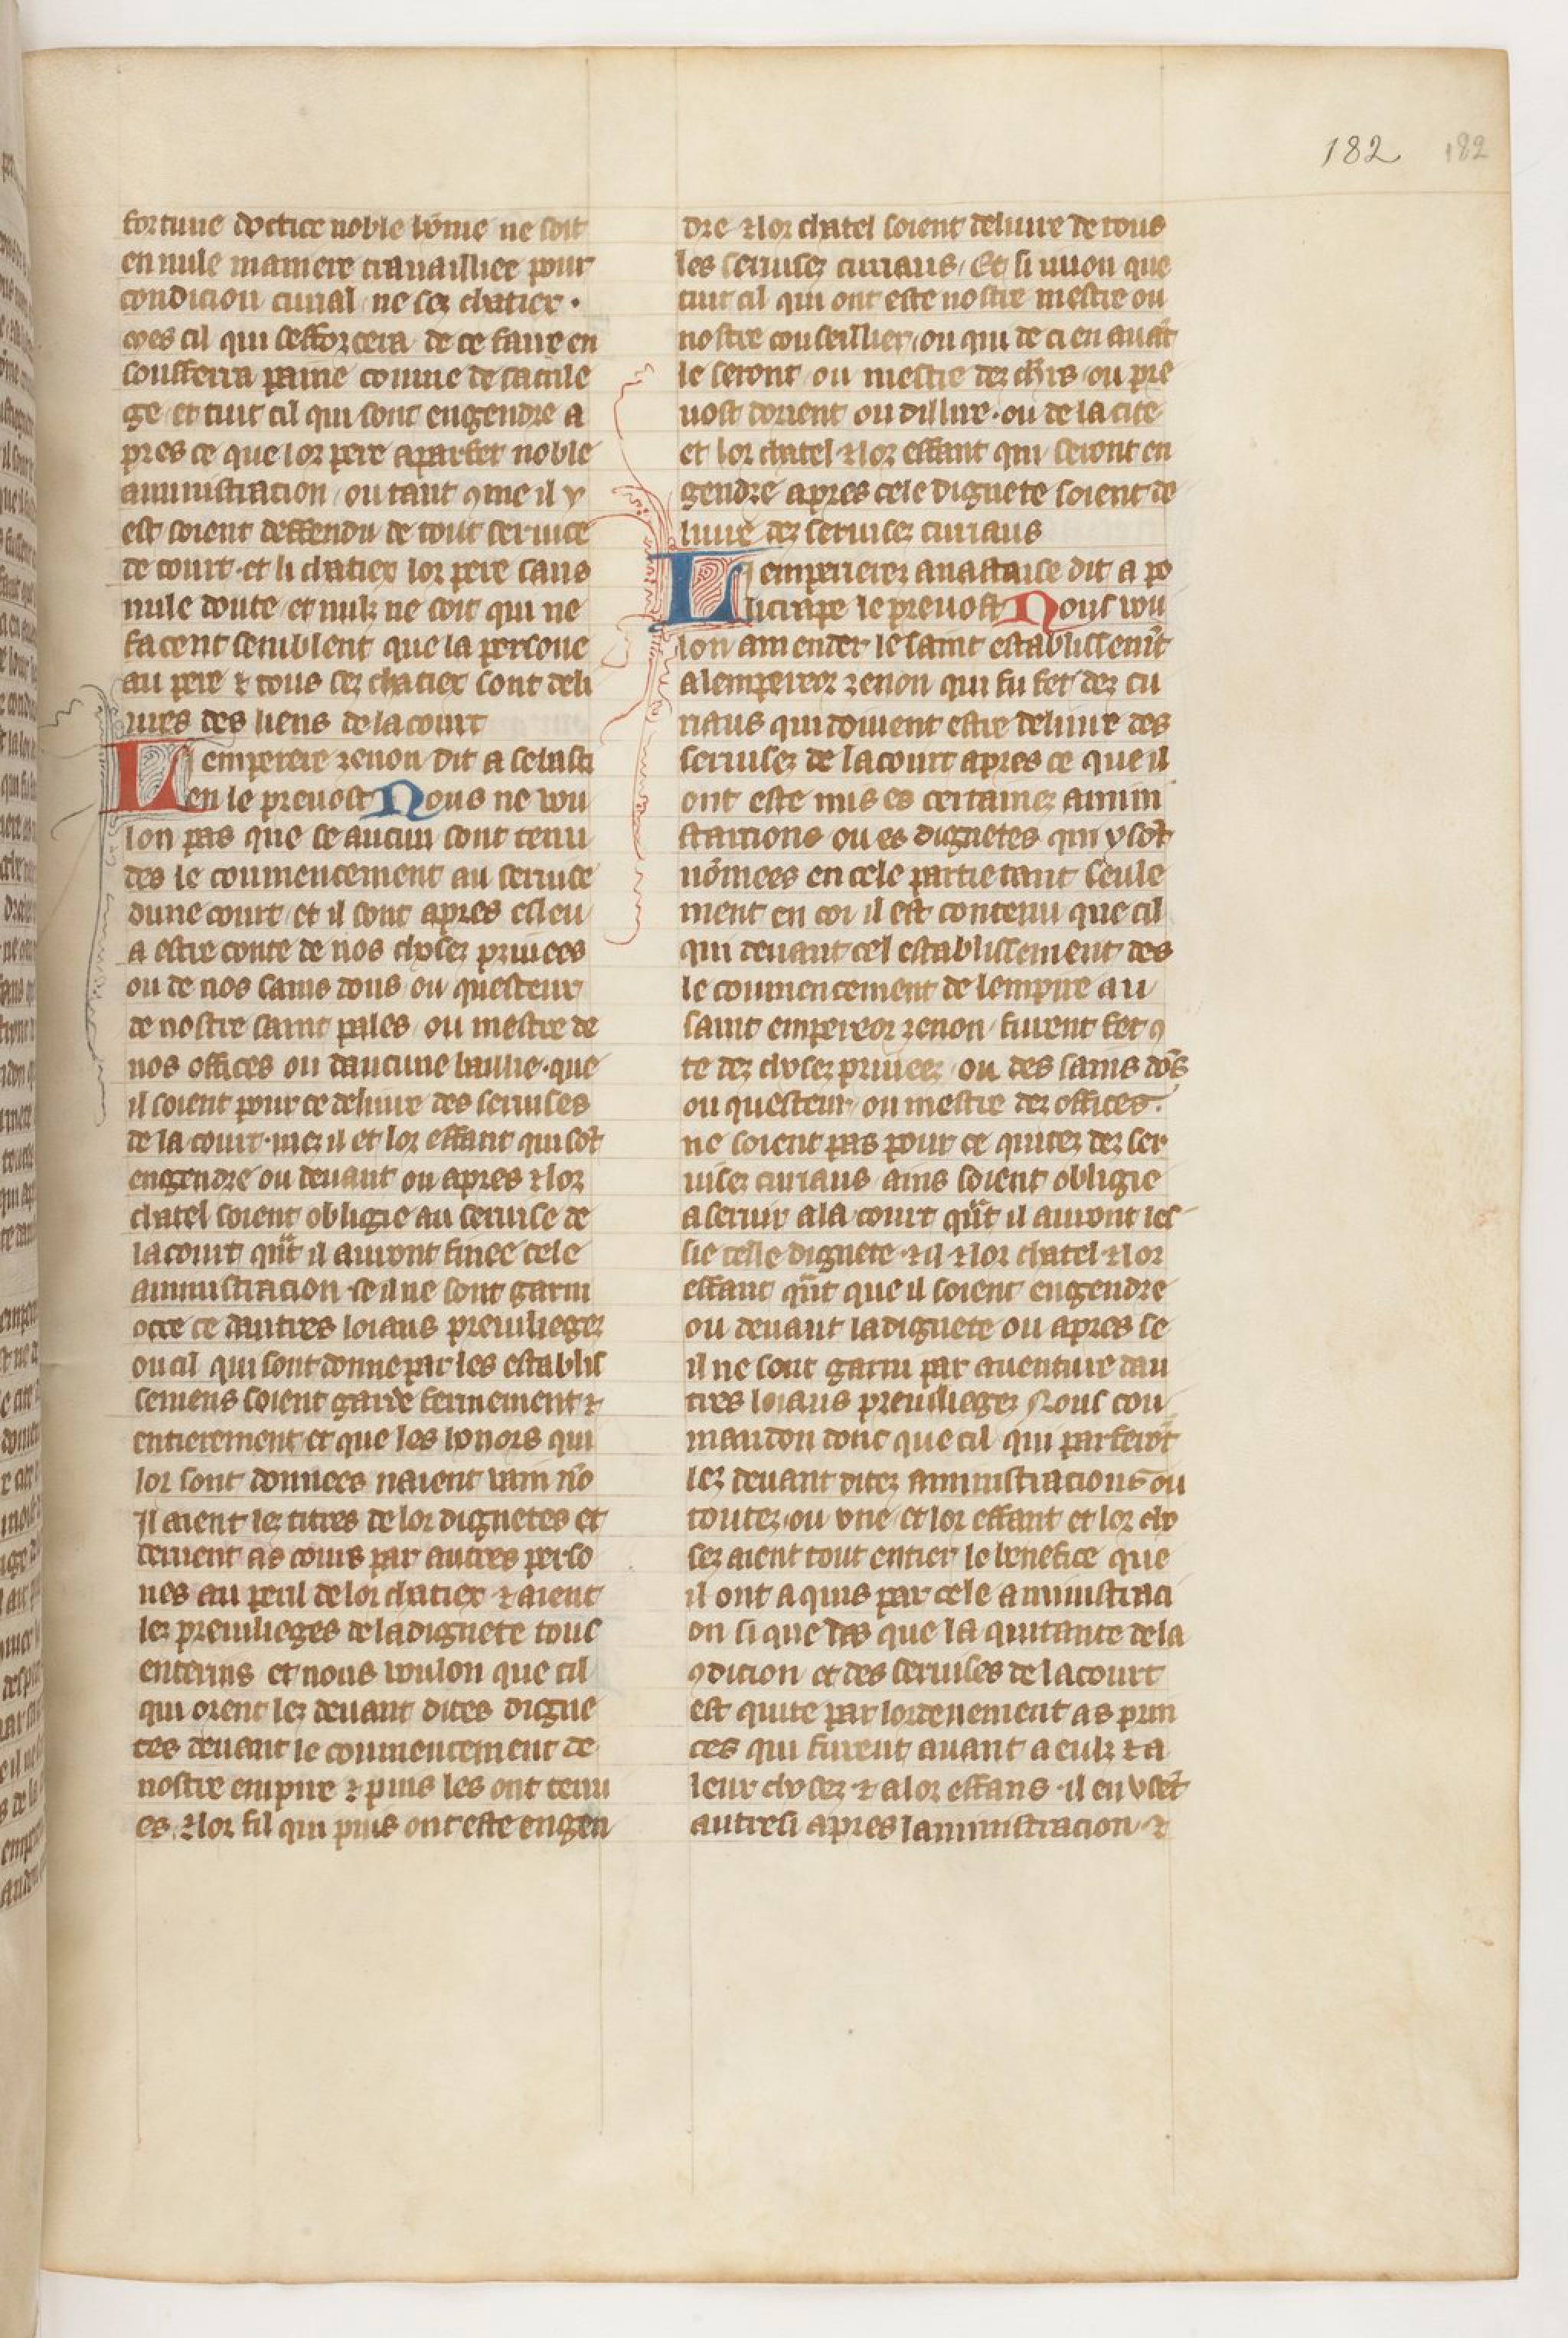 182 182
fortune doctice noble home ne soit
en nule maniere travaillier pour
condicion curial ne sez chatier .
mes cil qui sefforcera de ce faire en
soufferra paine comme de sacrile
ge et tuit cil qui sont engendre a
pres ce que lor pere a parfet noble
aministracion ou tant 9me il y
est soient deffendu de tout service
de court . et li chatiex lor pere sans
nule doute et nulz ne soit qui ne
facent semblent que la persone
au pere ⁊ tous sez chatiex sont deli
vres des liens de la court
Lemperere zenon dit a sebasti
en le prevost Nous ne vou
lon pas que se aucun sont tenu
des le conmencement au service
dune court et il sont apres esleu
a estre conte de nos choses privees
ou de nos sains dons ou questeur
de nostre saint pales ou mestre de
nos offices ou daucune baillie . que
il soient pour ce delivre des services
de la court . mez il et lor effant qui sōt
engendre ou devant ou apres ⁊ lor
chatel soient obligie au servise de
la court qn̄t il auront finee cele
aministracion . se il ne sont garni
otre ce dautres loiaus previlieges
ou cil qui sont donne par les establis
semens soient garde fermement ⁊
entierement et que les honors qui
lor sont donnees naient vain nō
Il aient lez titres de lor dignetes et
servent as cours par autres perso
nes au peril de lor chatiex ⁊ aient
lez previlieges de la dignete tous
enterins et nous voulon que cil
qui orent lez devant dites digne
tes devant le conmencement de
nostre empire ⁊ puis les ont tenu
es . ⁊ lor fil qui puis ont este engen
dre ⁊ lor chatel soient delivre de tous
les servisez curiaus . Et si vuon que
tuit cil qui ont este nostre mestre ou
nostre conseillier ou qui de ci en avāt
le seront ou mestre dez chr̄s ou pre
vost dorient ou dillire . ou de la cite
et lor chatel ⁊ lor effant qui seront en
gendre apres cele dignete soient de
livre dez servisez curiaus
Lemperierez anastaise dit a po
licarpe le prevost Nous vou
lon amender le saint establissemn̄t
a lempereor zenon qui fu fet dez cu
riaus qui doivent estre delivre des
servisez de la court apres ce que il
ont este mis es certainez amini
stracions ou es dignetes qui y sōt
nōmees en cele partie tant seule
ment en coi il est contenu que cil
qui devant cel establissement des
le conmencement de lempire au
saint empereor zenon furent fet 9
te dez chosez privees ou des sains dōs
ou questeur ou mestre dez offices .
ne soient pas pour ce quitez dez ser
visez curiaus ains soient obligie
a servir a la court qn̄t il auront les
sie celle dignete . ⁊ il ⁊ lor chatel ⁊ lor
effant qn̄t que il soient engendre
ou devant la dignete ou apres se
il ne sont garni par aventure dau
tres loiaus previlieges Nous con
mandon donc que cil qui parferōt
lez devant ditez aministracions ou
toutez . ou une et lor effant et lor cho
sez aient tout entier le benefice que
il ont aquis par cele aministraci
on si que des que la quitance de la
9dicion et des servises de la court
est quite par lordenement as prin
ces qui furent avant a eulz ⁊ a
leur chosez . ⁊ a lor effans . il en usēt
autresi apres laministracion . ⁊